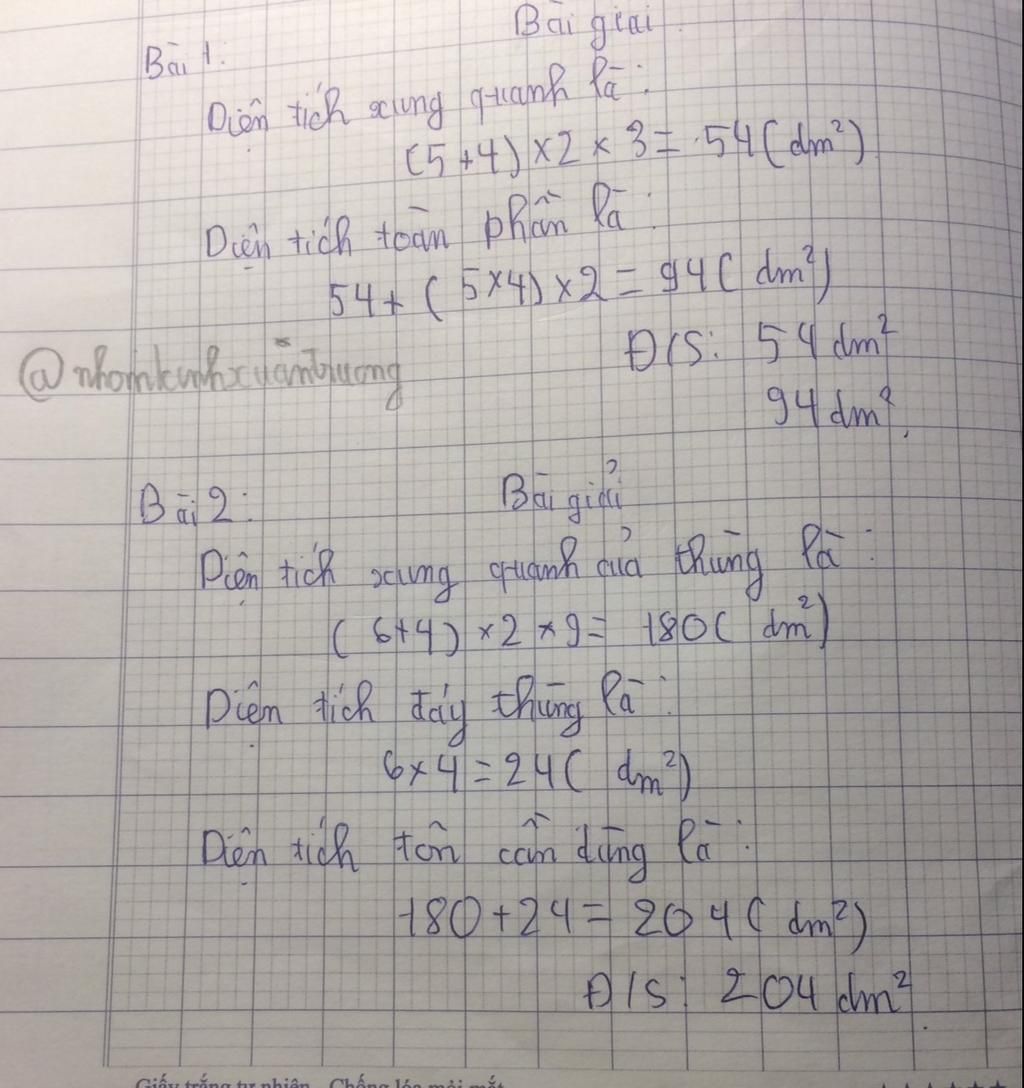 Bài giải
Bài 1:
Diện tích xung quanh là:
(5+4) × 2 × 3 = 54 (dm²)
Diện tích toàn phần là:
54 + (5×4) × 2 = 94 (dm²)
Đ/S: 54 dm²
@nhomkinhxuantruong
94 dm².
Bài 2: Bài giải
Diện tích xung quanh của thùng là:
(6+4) × 2 × 9 = 180 (dm²)
Diện tích đáy thùng là:
6×4 = 24 (dm²)
Diện tích tôn cần dùng là:
180 + 24 = 204 (dm²)
Đ/S: 204 dm².
Giấy trắng tự nhiên Chống lóa mỏi mắt